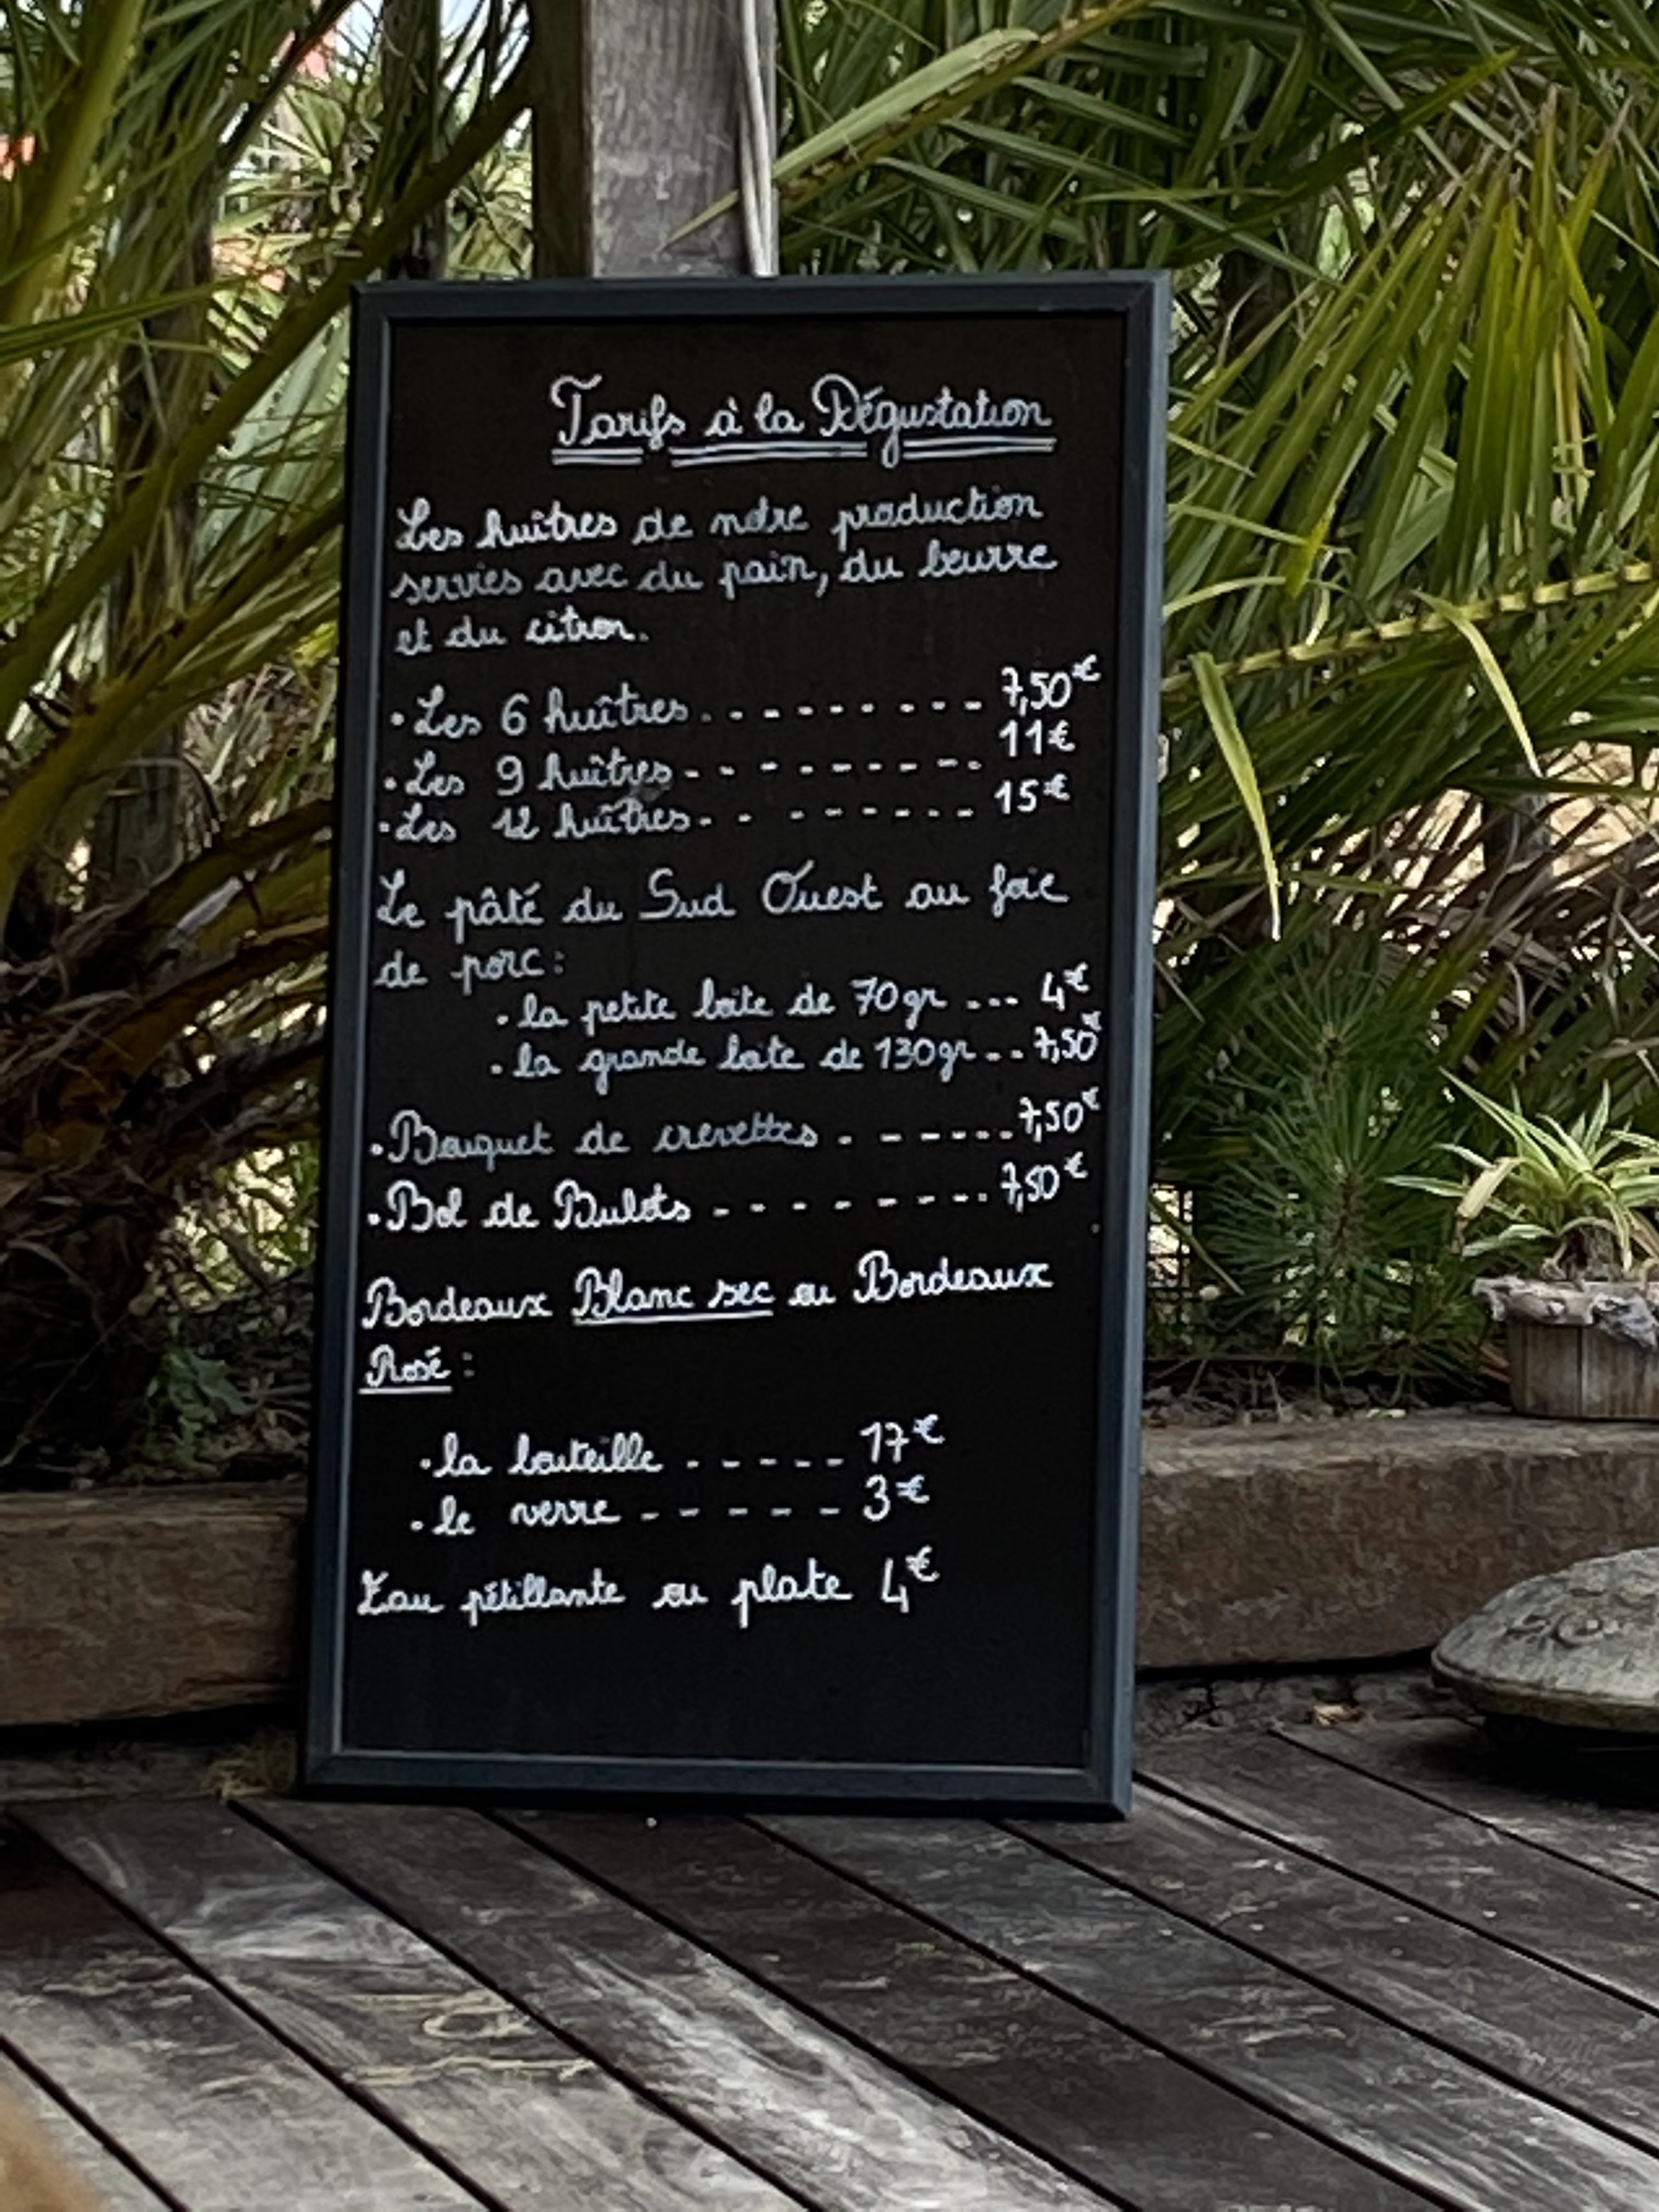 Tarifs à la Dégustation
Les huîtres de notre production
servies avec du pain, du beurre
et du citron.
• Les 6 huîtres . - - - - - - - - - 7,50€
• Les 9 huîtres - - - - - - - - - - 11€
• Les 12 huîtres - - - - - - - - - 15€
Le pâté du Sud Ouest au foie
de porc :
• la petite boite de 70gr --- 4€
• la grande boite de 130gr -- 7,50€
• Bouquet de crevettes - - - - - - - 7,50€
• Bol de Bulots - - - - - - - - - 7,50€
Bordeaux Blanc sec ou Bordeaux
Rosé :
• la bouteille - - - - - 17€
• le verre - - - - - 3€
Eau pétillante ou plate 4€